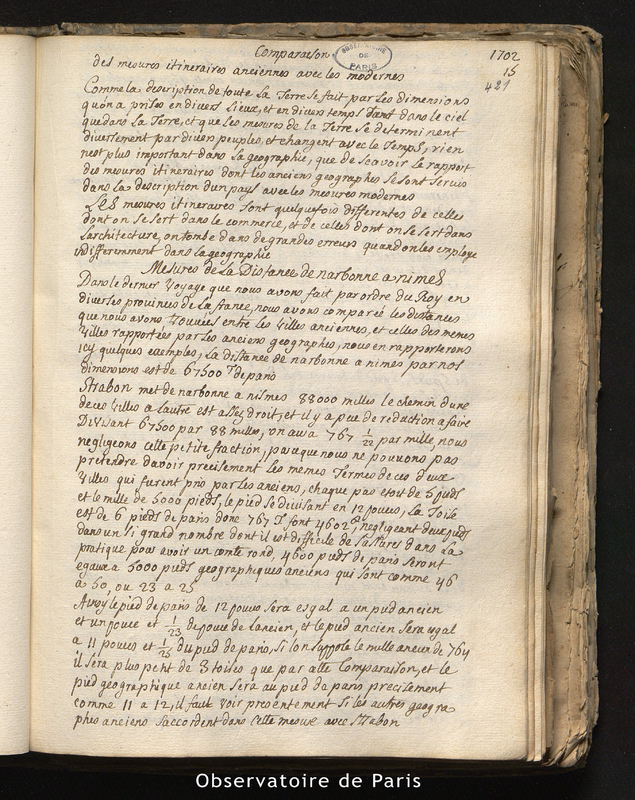 Comparaison
OBSERVATOIRE DE PARIS
1702
15
421
des mesures itineraires anciennes avec les modernes
Comme la description de toute la Terre se fait par les dimensions
quon a prises en divers Lieux, et en divers temps tant dans le ciel
que dans La Terre, et que les mesures de la Terre se determinent
diversement par divers peuples, et changent avec le Temps, rien
nest plus important dans la geographie, que de scavoir le rapport
des mesures itineraires dont les anciens geographes se sont servis
dans la description dun pays avec les mesures modernes
Les mesures itineraires sont quelquefois differentes de celles
dont on se sert dans le commerce, et de celles dont on se sert dans
Larchitecture, on tombe dans de grandes erreurs quand on les employe
indifferemment dans la geographie
Mesures de la Distance de narbonne a nimes
Dans le dernier voyage que nous avons fait par ordre du Roy en
diverses provinces de la france, nous avons comparé les distances
que nous avons trouvées entre les villes anciennes, et celles des memes
villes rapportées par les anciens geographes, nous en rapporterons
icy quelques exemples, La distance de narbonne a nimes par nos
dimensions est de 67500 T de paris
Strabon met de narbonne a nismes 88000 milles le chemin dune
de ces villes a lautre est assez droit, et il y a peu de reduction a faire
Divisant 67500 par 88 milles, on aura 767 1/22 par mille, nous
negligeons cette petite fraction, parceque nous ne pouvons pas
pretendre davoir precisement les memes Termes de ces deux
villes qui furent pris par les anciens, chaque pas etoit de 5 pieds
et le mille de 5000 pieds, le pied se divisant en 12 pouces, La Toise
est de 6 pieds de paris donc 767 T font 4602 negligeant deux pieds
dans un si grand nombre dont il est difficile de sassurer dans La
pratique pour avoir un conte rond, 4600 pieds de paris seront
egaux a 5000 pieds geographiques anciens qui sont comme 46
a 50, ou 23 a 25
Ainsy le pied de paris de 12 pouces sera esgal a un pied ancien
et un pouce et 1/23 de pouce de lancien, et le pied ancien sera egal
a 11 pouces et 1/25 du pied de paris, si lon suppose le mille ancien de 764
il sera plus petit de 3 toises que par cette Comparaison, et le
pied geographique ancien sera au pied de paris precisement
comme 11 a 12, il faut voir presentement si les autres geogra
phes anciens saccordent dans cette mesure avec Strabon
Observatoire de Paris